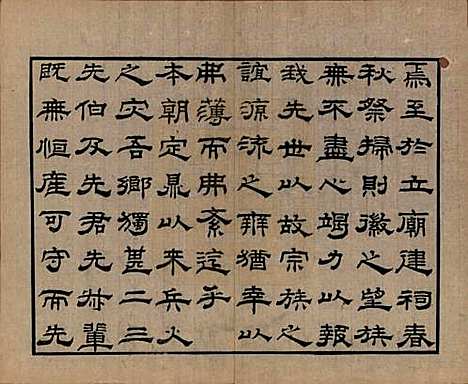 焉至於立廟建祠春
秋祭掃則徽之望族
無不盡心竭力以報
我先世以故宗族之
誼源流之辨猶幸以
弗薄而弗紊迨乎
本朝定鼎以來兵火
之灾吾鄉獨甚二三
先伯及先君先叔輩
既無恒產可守而先